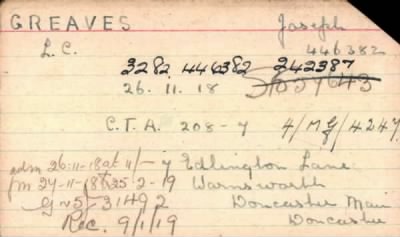 GREAVES Joseph
L.C. 446382
3282. 446382 242387
26. 11. 18
C.T.A. 208-7 4/M
adm 26-11-18 at 11/- 7 Edlington Lane
fm 27-11-18 to 25-2-19 Warmsworth
Doncaster Main
Rec. 9/1/19 Doncaster